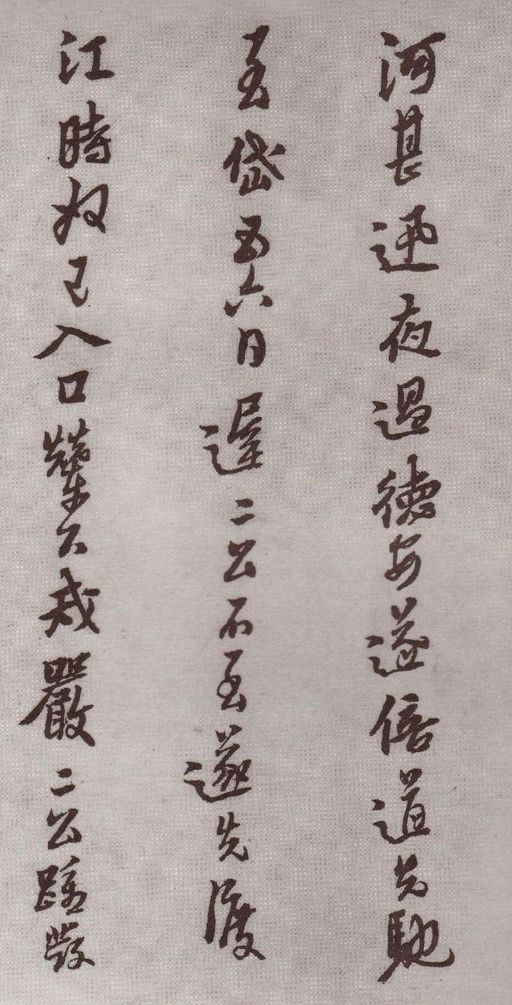 河甚迅夜過德安遂倍道先馳
至岱五六日遲二公不至遂先渡
江時奴已入口輦下戒嚴二公踉蹡